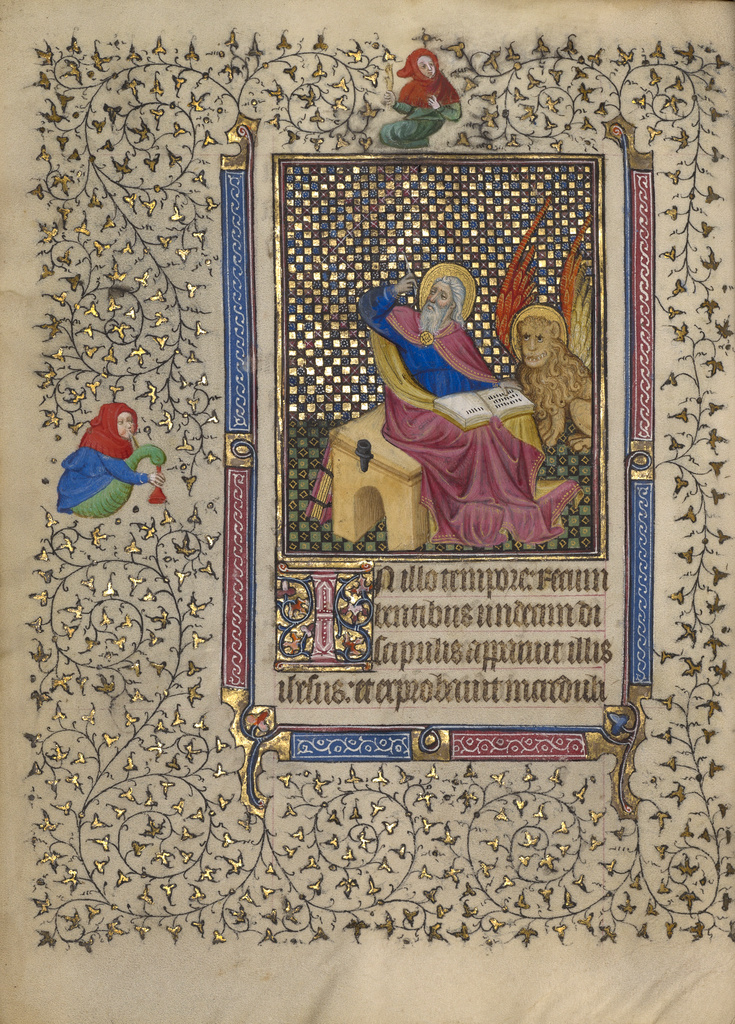 IN illo tempore: Recum
bentibus undecim di
scipulis apparuit illis
ihesus: et exprobrauit increduli